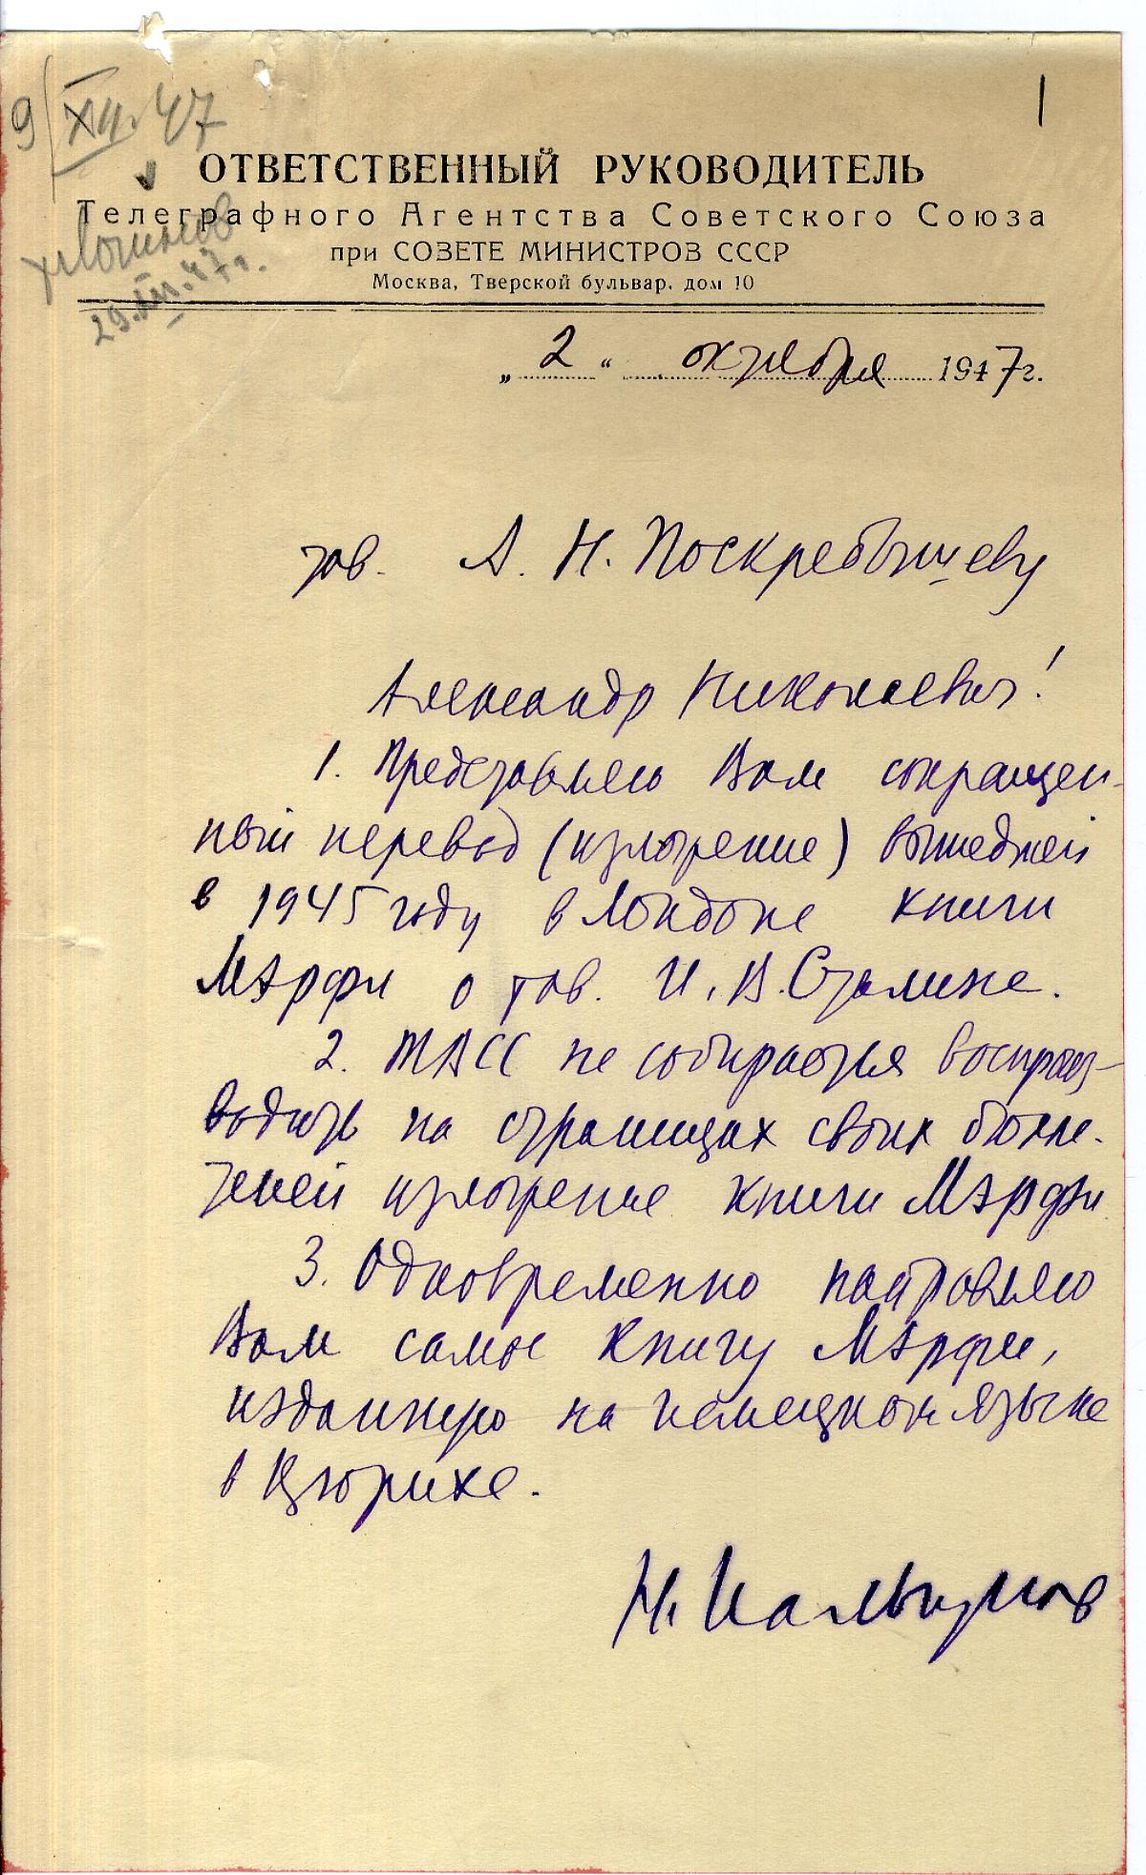 1
9/XII.47
ОТВЕТСТВЕННЫЙ РУКОВОДИТЕЛЬ
Телеграфного Агентства Советского Союза
при СОВЕТЕ МИНИСТРОВ СССР
Москва, Тверской бульвар, дом 10
29.XII.47г.
„2“ октября 1947г.
тов. А. Н. Поскребышеву
Александр Николаевич!
1. Представляю Вам сокращен-
ный перевод (изложение) вышедшей
в 1945 году в Лондоне книги
Мэрфи о тов. И. В. Сталине.
2. ТАСС не собирается воспроиз-
водить на страницах своих бюлле-
теней изложение книги Мэрфи
3. Одновременно направляю
Вам самое книгу Мэрфи,
изданную на немецком языке
в Цюрихе.
Н. Пальгунов